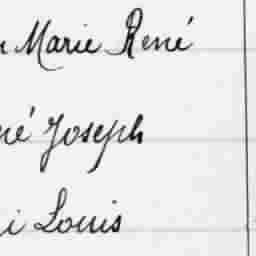 Marie René
Joseph
Louis